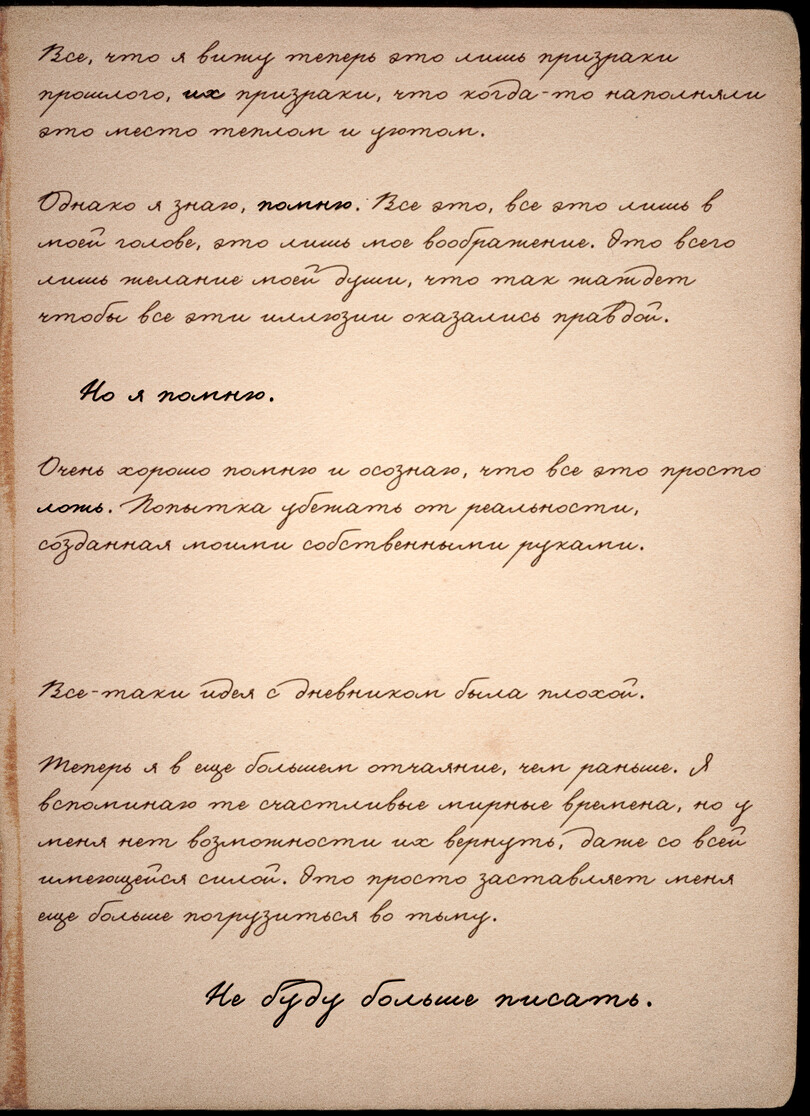 Все, что я вижу теперь это лишь призраки
прошлого, их призраки, что когда-то наполняли
это место теплом и уютом.
Однако я знаю, помню. Все это, все это лишь в
моей голове, это лишь мое воображение. Это всего
лишь желание моей души, что так жаждет
чтобы все эти иллюзии оказались правдой.
Но я помню.
Очень хорошо помню и осознаю, что все это просто
ложь. Попытка убежать от реальности,
созданная моими собственными руками.
Все-таки идея с дневником была плохой.
Теперь я в еще большем отчаяние, чем раньше. Я
вспоминаю те счастливые мирные времена, но у
меня нет возможности их вернуть, даже со всей
имеющейся силой. Это просто заставляет меня
еще больше погрузиться во тьму.
Не буду больше писать.